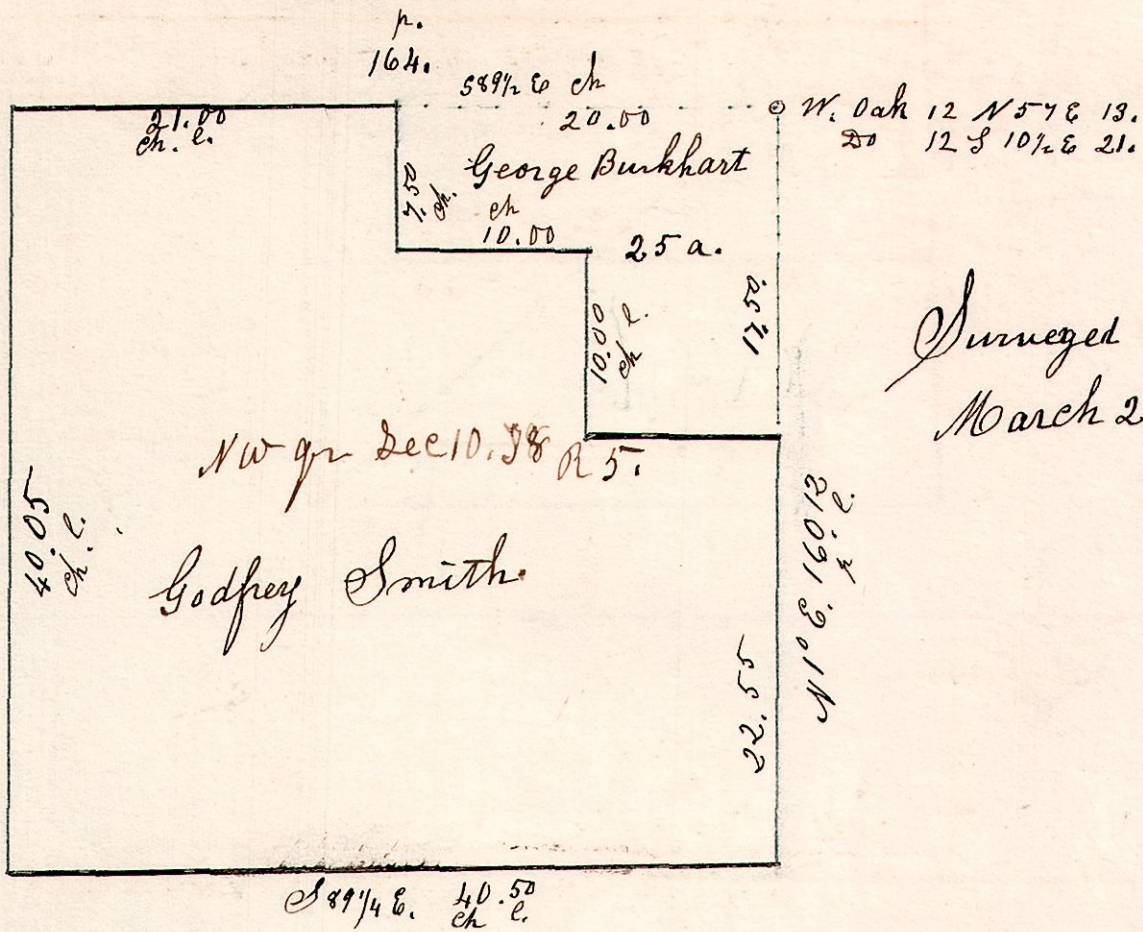 p.
164.
S89½ E ch
20.00
W. Oak 12 N 57 E 13.
Do 12 S 10½ E 21.
21.00
ch. l.
George Burkhart
7.50
ch.
ch
10.00
25 a.
10.00
ch l.
17.50
Surveyed
March 2
NW qr Sec 10. T8 R 5.
40.05
ch. l.
Godfrey Smith.
N 1° E. 160 12
p l.
22.55
S 89¼ E. 40.50
ch l.